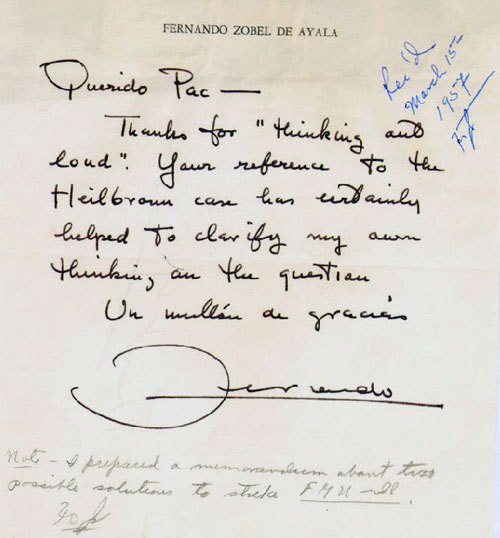 FERNANDO ZOBEL DE AYALA
Rec'd
March 15-
1957
Querido Pac —
Thanks for "thinking out
loud". Your reference to the
Heilbronn case has certainly
helped to clarify my own
thinking on the question
Un millón de gracias
Fernando
Note - I prepared a memorandum about two
possible solutions to strike